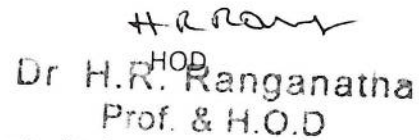 H R Rang
HOD
Dr H.R. Ranganatha
Prof. & H.O.D